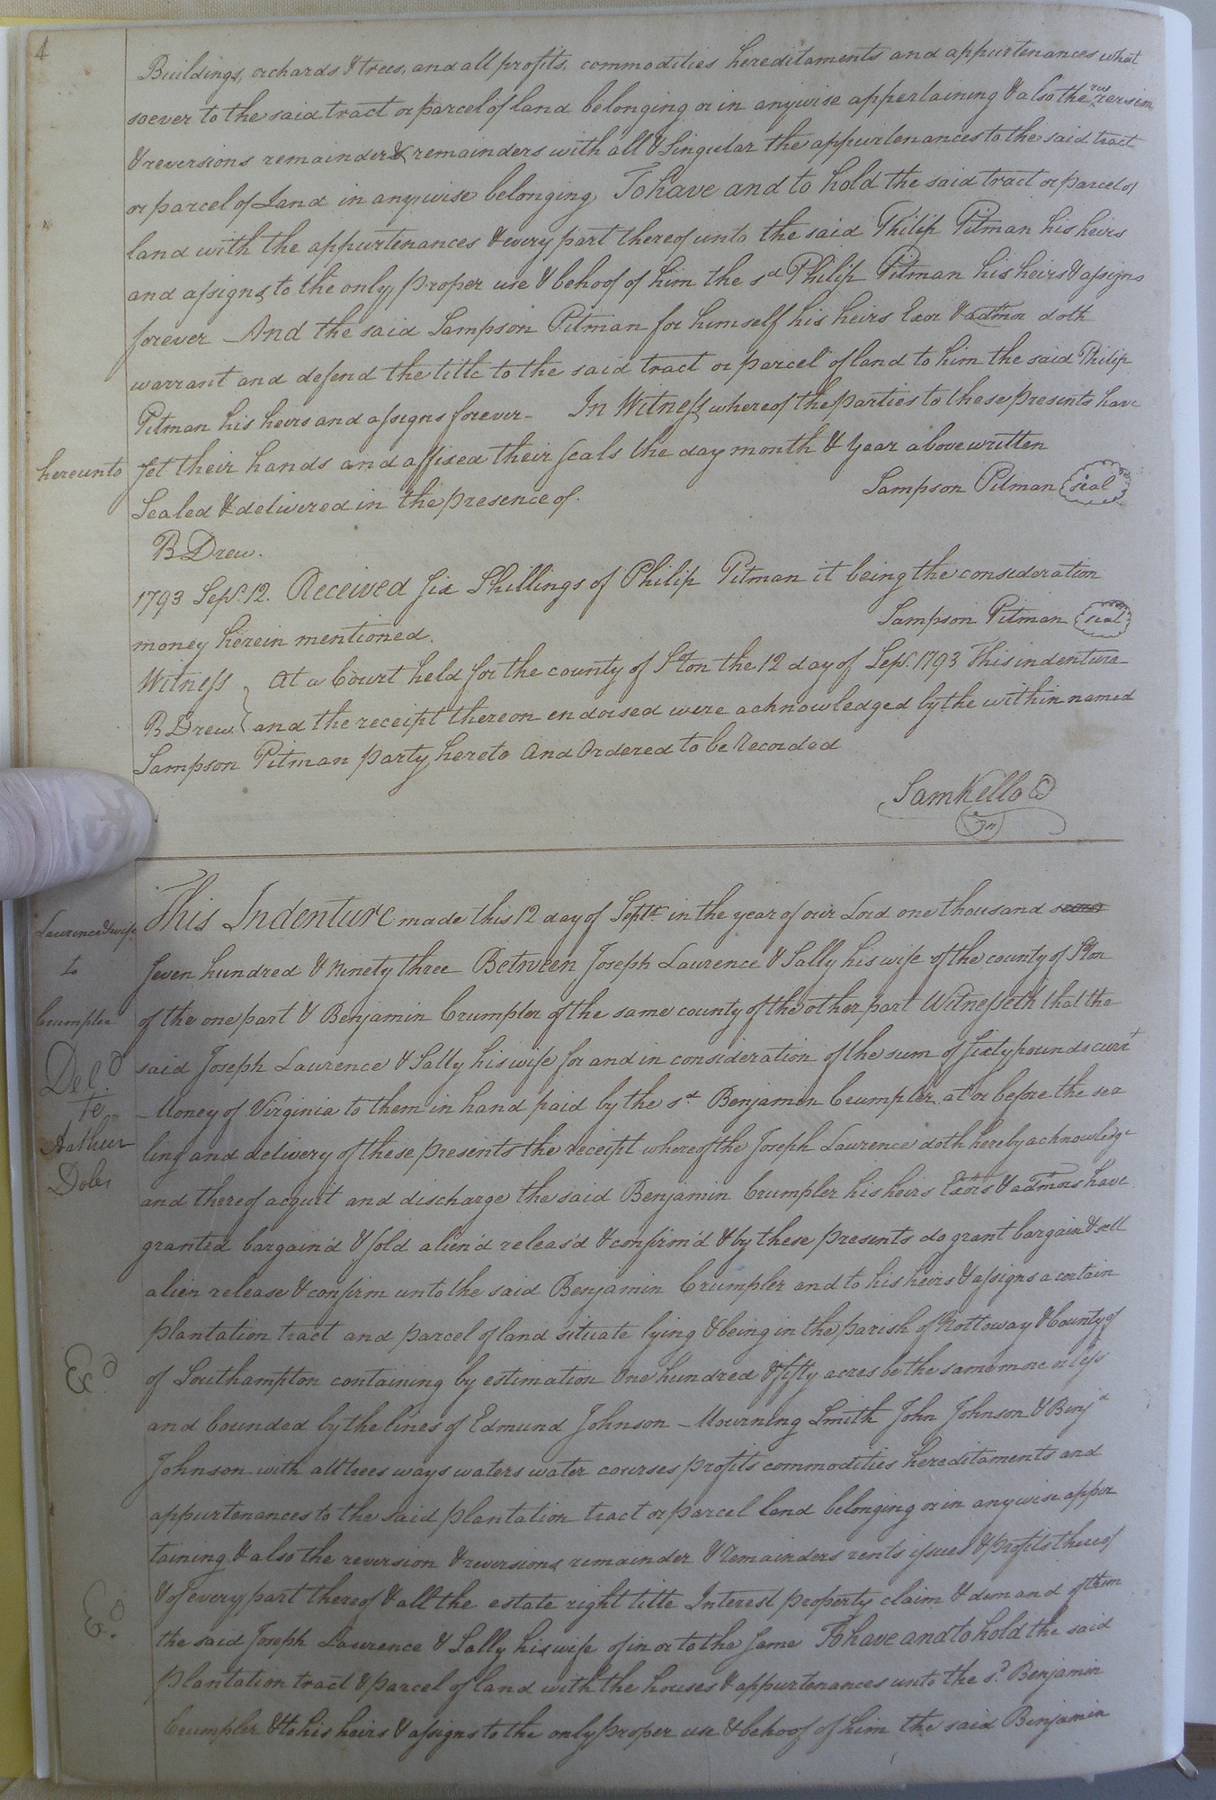 4
Buildings, orchards & trees, and all profits, commodities hereditaments and appurtenances what
soever to the said tract or parcel of land belonging or in anywise appertaining & also the reversion
& reversions remainder & remainders with all & Singular the appurtenances to the said tract
or parcel of Land in anywise belonging To have and to hold the said tract or parcel of
land with the appurtenances & every part thereof unto the said Philip Pitman his heirs
and assigns to the only proper use & behoof of him the sd Philip Pitman his heirs & assigns
forever And the said Sampson Pitman for himself his heirs Exor & admor doth
warrant and defend the title to the said tract or parcel of land to him the said Philip
Pitman his heirs and assigns forever - In Witness whereof the parties to these presents have
hereunto Set their hands and affixed their seals the day month & Year above written
Sealed & delivered in the presence of Sampson Pitman seal
B Drew.
1793 Sept. 12. Received Six Shillings of Philip Pitman it being the consideration
money herein mentioned. Sampson Pitman seal
Witness } At a Court held for the county of Ston the 12 day of Sept. 1793 This indenture
B Drew } and the receipt thereon endorsed were acknowledged by the within named
Sampson Pitman party hereto And Ordered to be Recorded
Sam Kello
Laurence & wife
to
Crumpler
Deld
to
Doles
This Indenture made this 12 day of Septr in the year of our Lord one thousand
Seven hundred & Ninety three Between Joseph Laurence & Sally his wife of the county of Ston
of the one part & Benjamin Crumpler of the same county of the other part Witnesseth that the
said Joseph Laurence & Sally his wife for and in consideration of the sum of Sixty pounds currt
Money of Virginia to them in hand paid by the sd Benjamin Crumpler at or before the sea
ling and delivery of these presents the receipt whereof the Joseph Laurence doth hereby acknowledge
and thereof acquit and discharge the said Benjamin Crumpler his heirs Exors & admors have
granted bargain'd & sold alien'd releas'd & confirm'd & by these presents do grant bargain & sell
alien release & confirm unto the said Benjamin Crumpler and to his heirs & assigns a certain
plantation tract and parcel of land situate lying & being in the parish of Nottoway & County of
of Southampton containing by estimation One hundred & fifty acres be the same more or less
and bounded by the lines of Edmund Johnson - Mourning Smith John Johnson & Benja
Johnson with all trees ways waters water courses profits commodities hereditaments and
appurtenances to the said plantation tract or parcel land belonging or in anywise apper
taining & also the reversion & reversions remainder & remainders rents issues & profits thereof
& of every part thereof & all the estate right title Interest property claim & demand of them
the said Joseph Laurence & Sally his wife of in or to the Same To have and to hold the said
plantation tract & parcel of land with the houses & appurtenances unto the sd. Benjamin
Crumpler & to his heirs & assigns to the only proper use & behoof of him the said Benjamin